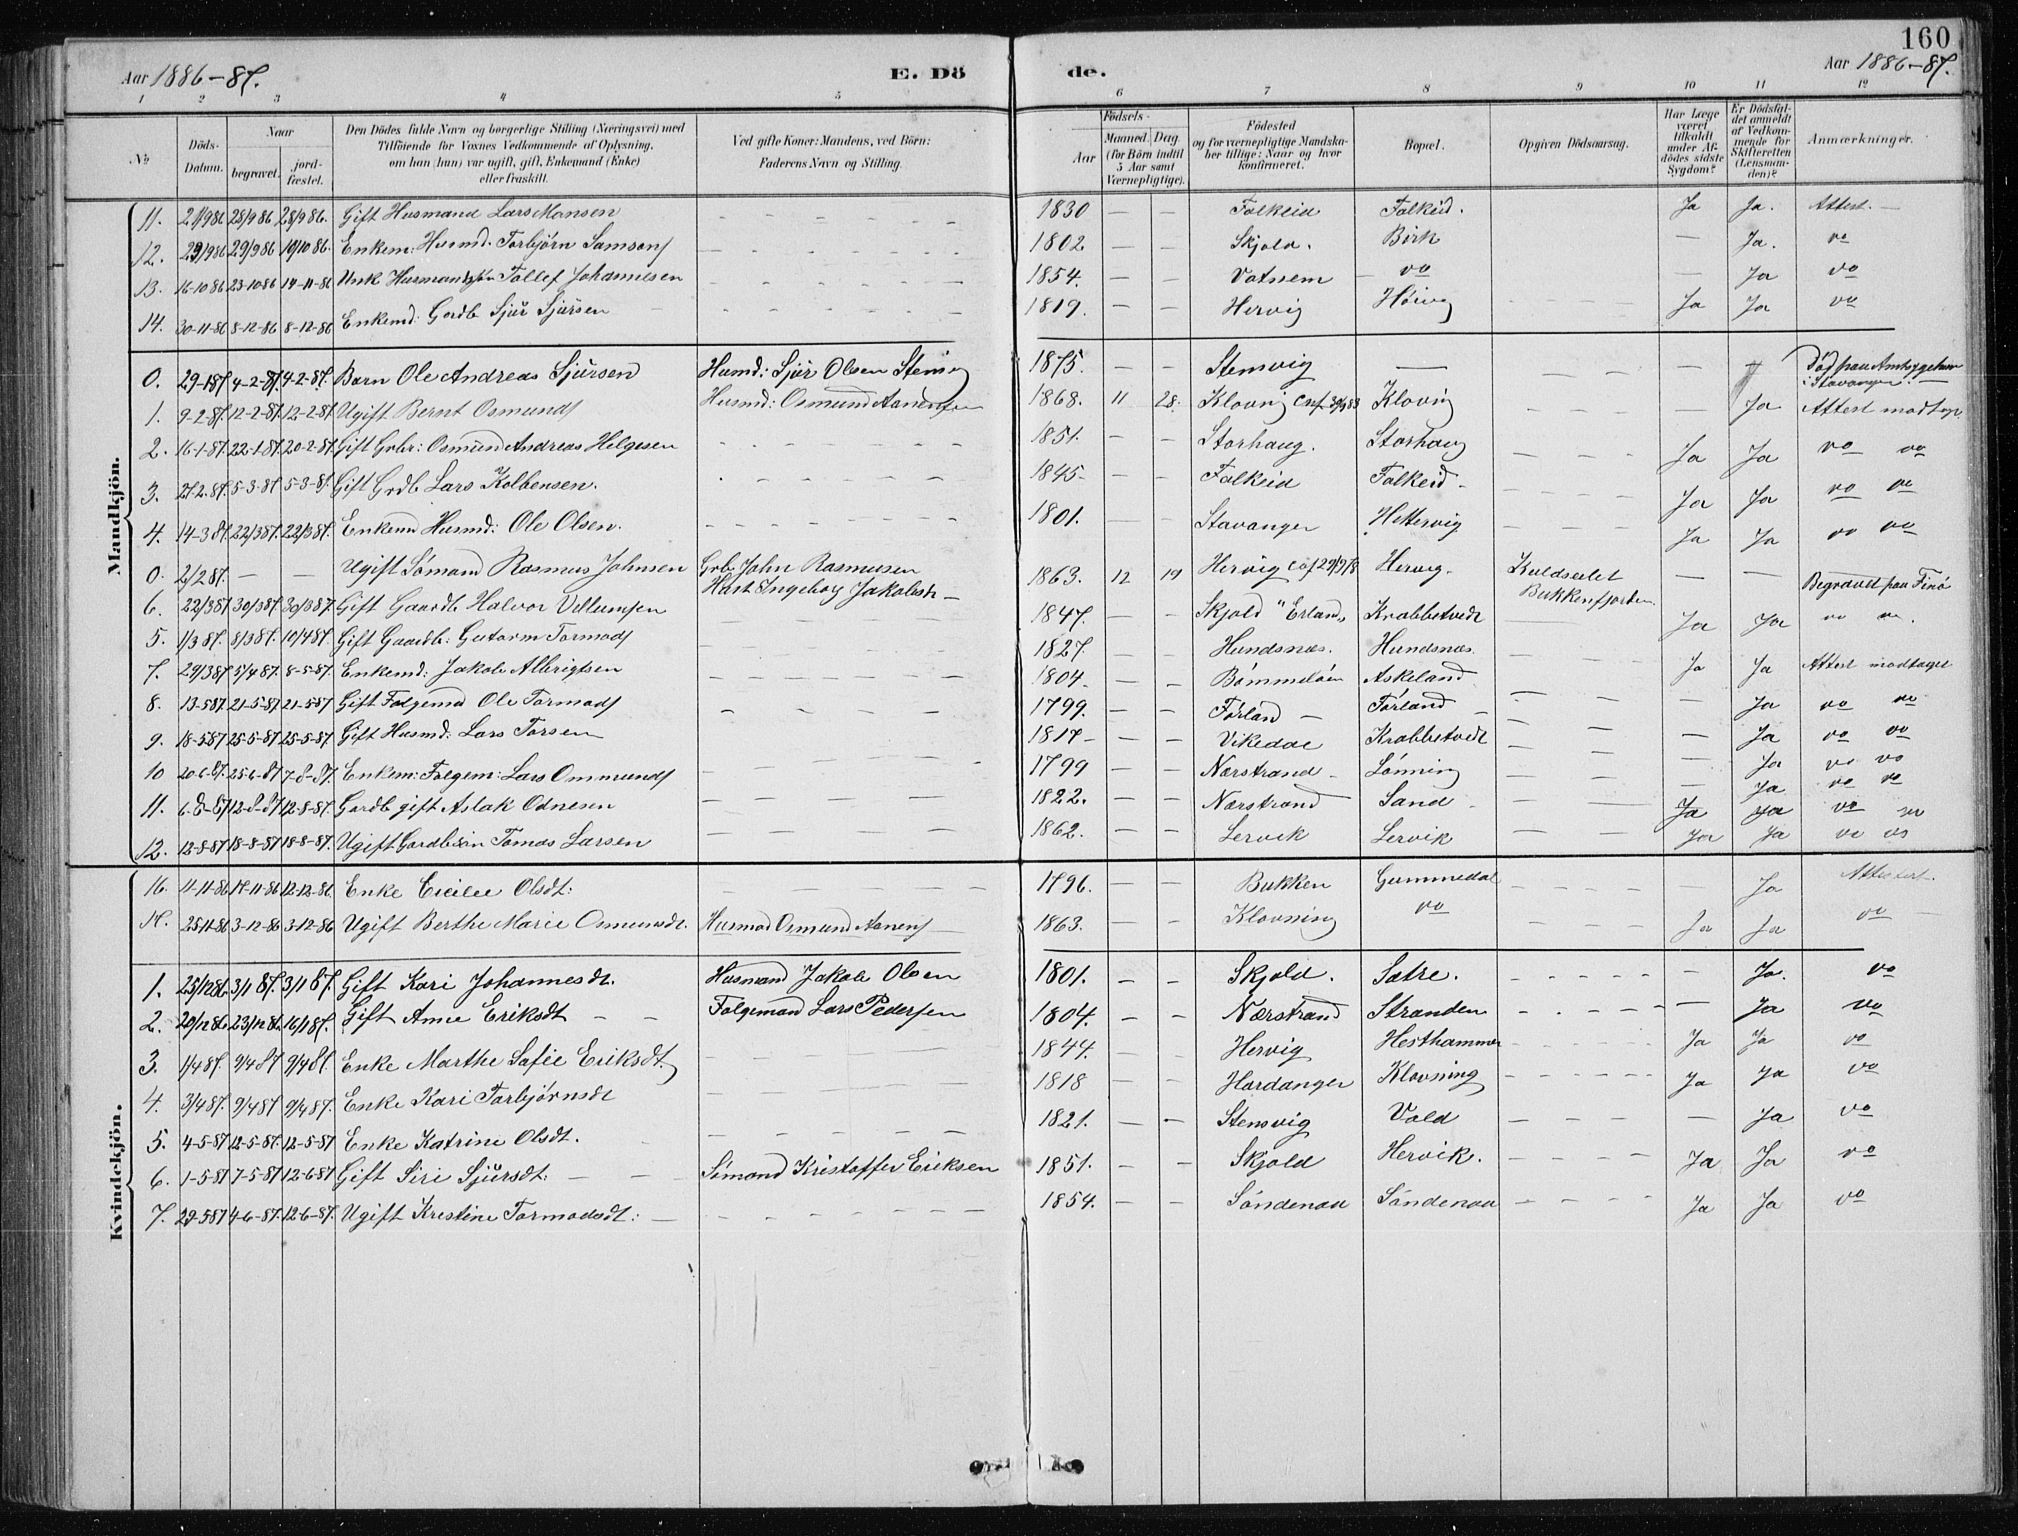 160
Aar 1886-87. E. Dö de. Aar 1886-87.
1 2 3 4 5 6 7 8 9 10 11 12
No
Döds-Datum.
Naar
begravet.
jord-fæstet.
Den Dödes fulde Navn og borgerlige Stilling (Næringsvei) med
Tilföiende for Voxnes Vedkommende af Oplysning,
om han (hun) var ugift, gift, Enkemand (Enke)
eller fraskilt.
Ved gifte Koner: Mandens, ved Börn:
Faderens Navn og Stilling.
Födsels-
Aar
Maaned.
Dag.
(for Börn indtil 5 Aar samt Værnepligtige).
Födested
og for værnepligtige Mandska-
ber tillige: Naar og hvor
konfirmeret.
Bopæl.
Opgiven Dödsaarsag.
Har Læge været tilkaldt under Af-dödes sidste Sygdom?
Er Dödsfal-det anmeldt af Vedkom-mende for Skifteretten (Lensman-den)?
Anmærkninger.
Mandkjön.
11. 21/9 86 28/9 86 28/9 86. Gift Husmand Lars Monsen 1830 — — Falkeid Falkeid. Ja Ja. Attest.
12. 23/9 86 29/9 86 10/10 86. Enkem: Husmd. Torbjörn Samsons 1802 — — Skjold. Birk — Ja. do
13. 16-10 86 23-10 86 14-11-86 Tollef Johannesen 1854. — — Vatnem do — Ja do
14. 30-11-86 8-12-86 8-12-86 Enkemd: Gardb Sjur Sjursen 1819. — — Hervig Ja Ja do
0. 29-1 87. 4-2-87. 4-2-87. Barn Ole Andreas Sjursen Husmd: Sjur Olsen 1875. — — Stensvig — — Död paa
i Stavanger.
1. 9-2-87. 12-2-87. 12-2-87. Ugift Bernt Osmunds Husmd: Osmund Aanensen 1868. 11 28. Klovnig Klovnig — Ja Attest modtag
2. 16-1-87. 22-1-87. 20-2-87. Gift Grbr: Osmund Andreas Helgesen 1851. — — Storhaug. Storhaug Ja Ja do do
3. 27.2.87. 5-3-87. 5-3-87. Gift Grdb Lars Kolbensen. 1845- — — Falkeid Falkeid. Ja Ja do do
4. 14-3 87. 22/3 87. 22/3 87. Enkem Husmd: Ole Olsen. 1801. — — Stavanger Hettervig Ja Ja do do
0. 2/2 87. — — Ugift Sömand Rasmus Johnsen Grb. John Rasmusen
1863. 12 19 Hervig Hervig. Kuldseilet — — Begravet paa Finö
Ingeborg Jakobsdt Bukkenfjorden
6. 22/3 87 30/3 87. 30/3 87. Gift Gaardb Halvor Villumsen 1847. — — Skjold "Erland" Krabbetvedt Ja Ja do do.
5. 1/3 87. 8/3 87. 10/4 87. Gift Gaardb: Gutorm Tormods 1827 — — Hundsnæs. Hundsnæs.
7. 29/3 87 5/4 87. 8-5-87. Enkemd: Jakob Albrigtsen 1804. — — Bömmelöen Askeland Ja Ja Attest modtaget
8. 13-5 87. 21-5-87 21-5 87 Gift Folgemd Ole Tormods 1799. — — Förland Förland — Ja do do
9. 18-5 87 25-5-87 25-5-87 Gift Husmd: Lars Torsen 1817- — — Vikedal Krabbetvedt — Ja do do
10 20-6-87. 25-6-87 7-8-87. Enkem: Folgem: Lars Ommunds 1799 — — Nærstrand Lönning Ja do do
11. 6-8-87 12-8-87 12-8-87. Gardb gift Aslak Odnesen 1822. — — Nærstrand Sand — Ja do do
12. 12-8-87 18-8-87 18-8-87. Ugift Gardbsön Tomas Larsen 1862. — — Lervik Lervik Ja Ja do do
Kvindekjön.
16. 11-11-86 17-11-86 12-12-86. Enke Olsdt: 1796. — — Bukken Gummedal — Ja
17. 25-11-86 3-12-86 3-12-86 Ugift Berthe Marie Osmundsdt. Husmd Osmund Aanens 1863. — — Klovning do Ja Ja do
1. 25/12 86. 3/1 87. 3/1 87. Gift Kari Johannesdt. Husmand Jakob Olsen 1801. — — Skjold. Satre. — Ja. do
2. 20/12 86. 23/12 86. 16/1 87. Gift Anne Eriksdt Folgemand Lars Pedersen 1804. — — Nærstrand Stranden — Ja do
3. 1/4 87. 9/4 87 9/4 87. Enke Marthe Safie Eriksdt. 1844. — — Hervig Hesthammer Ja Ja do
4. 3/4 87. 9/4 87 9/4 87. Enke Kari Torbjörnsdt 1818 — — Hardanger Klovning Ja Ja do
5. 4-5-87 12-5-87. 12-5-87 Enke Katrine Olsdt. 1821. — — Stensvig Vold — Ja do
6. 1-5-87 7-5-87 12-6-87 Gift Siri Sjursdt: Sömand Kristoffer Eriksen 1851. — — Skjold Hervik. Ja Ja do
7. 29-5 87 4-6-87. 12-6-87. Ugift Kristine Tormodsdt: 1854. — — Söndenaa Söndenaa Ja Ja do